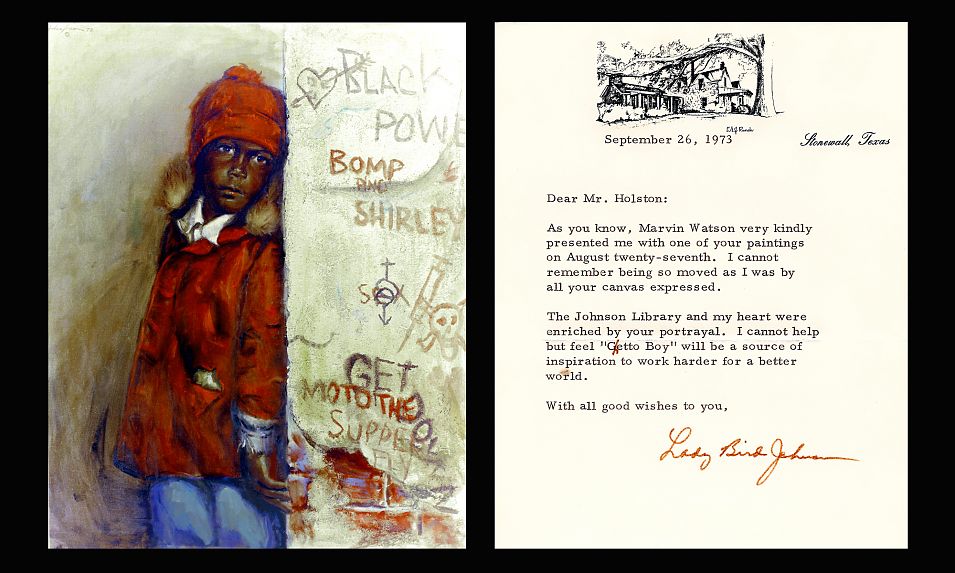 BLACK
POWE
BOMP
AND
SHIRLEY
SOX
GET
MOTO THE
SUPPER
FLY
LBJ Ranch
September 26, 1973
Stonewall, Texas
Dear Mr. Holston:
As you know, Marvin Watson very kindly
presented me with one of your paintings
on August twenty-seventh. I cannot
remember being so moved as I was by
all your canvas expressed.
The Johnson Library and my heart were
enriched by your portrayal. I cannot help
but feel "Getto Boy" will be a source of
inspiration to work harder for a better
world.
With all good wishes to you,
Lady Bird Johnson